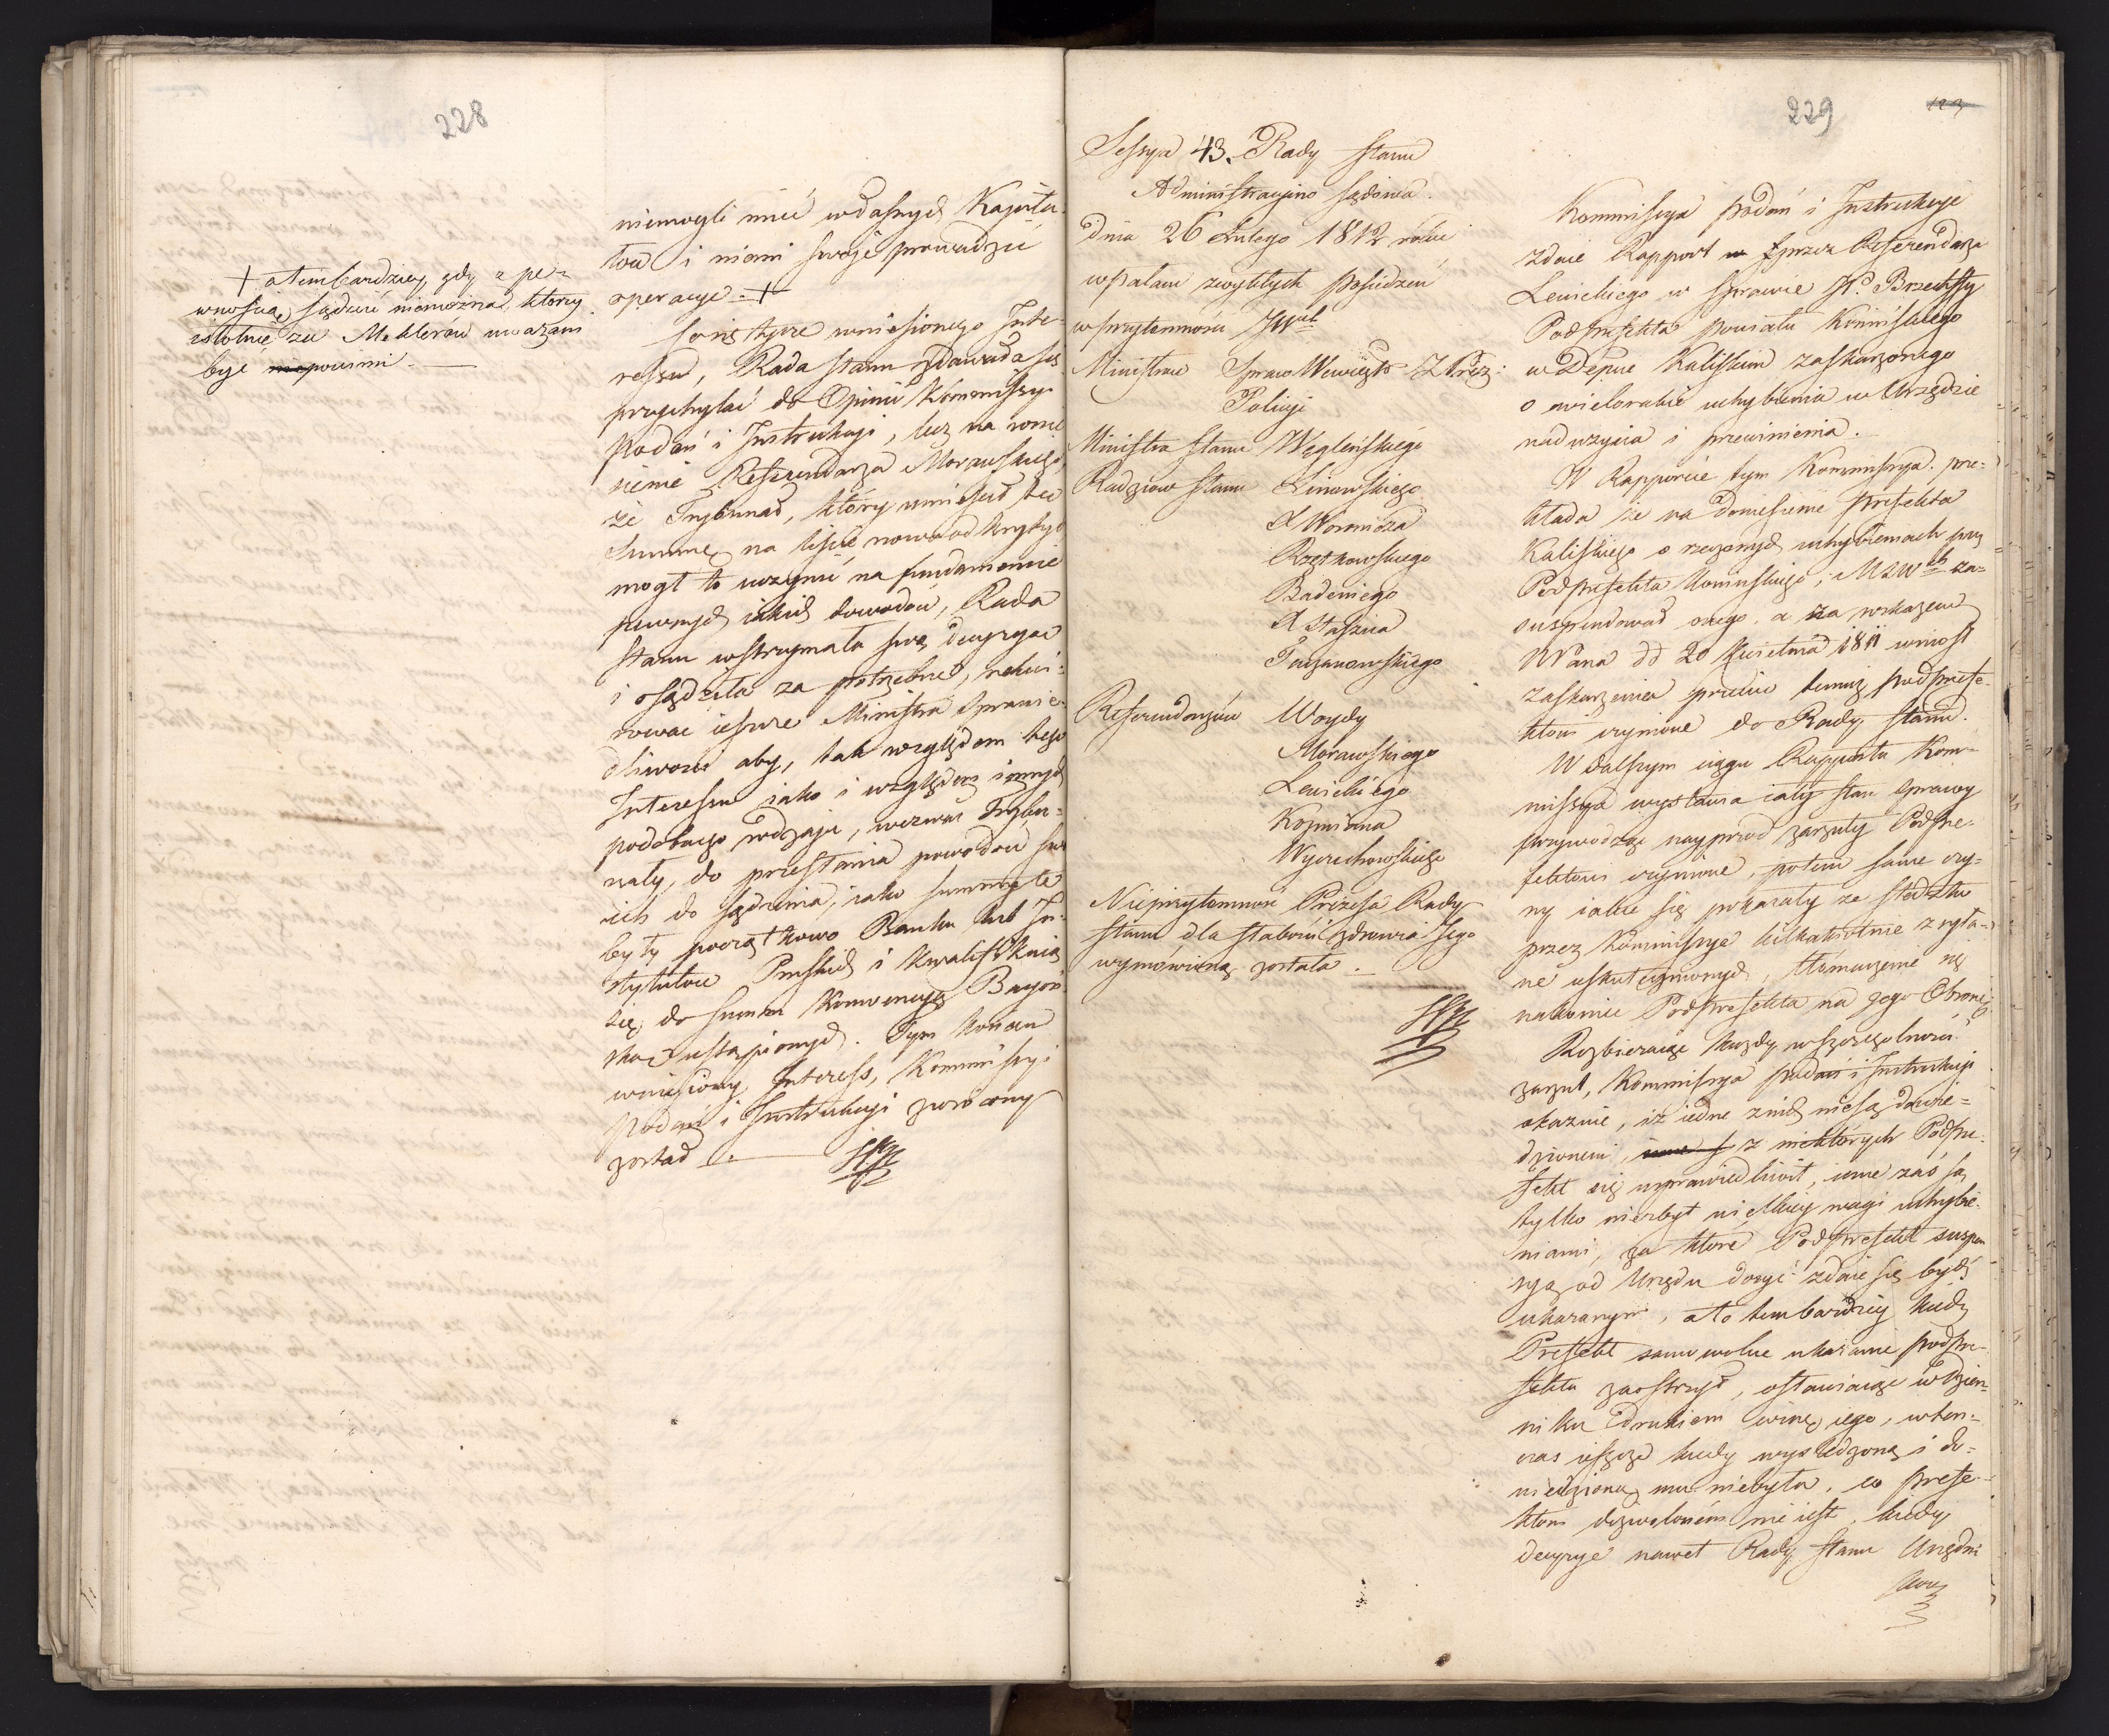 228
niemogli mieć własnych Kapita-
łow i niemi swoje prowadzić
operacye. +
+ atembardziey, gdy z pe-
wnością sądzić niemożna, którzy
istotnie za Meklerów uważani
być powinni.
Co się tycze wniesionego Inte-
ressu, Rada Stanu zdawała się
przychylać do Opinii Kommissyi
Podań i Instrukcyi, lecz na wnie
sienie Referendarza Morawskiego,
że Trybunał, który umieścił tę
Summę na liście
mogł to uczynić na fundamencie
pewnych iakich dowodów, Rada
Stanu wstrzymała swą decyzyą
i osądziła za potrzebne, rekwi-
rować ieszcze Ministra Sprawie-
dliwości aby, tak względem tego
Interessu iako i względem innych
podobnego rodzaju, wezwać Trybu-
nały, do przesłania powodów
ich do sądzenia, iako summy te
były początkowo Banku lub In-
stytutów Pruskich i kwalifikuią
się do summ Konwencyą Bayoń-
ską ustąpionych. Tym końcem
wniesiony Interess, Kommissyi
Podań i Instrukcyi zwrócony
został.
229
123
Sessya 43. Rady Stanu
Administracyjno Sądowa.
dnia 26 Lutego 1812 roku
w Pałacu zwykłych posiedzeń
w przytomności JWch
Ministrów Spraw Wewnętr. Z. Prez:
Policyi
Ministra Stanu Węgleńskiego
Radzcow Stanu Linowskiego
X Woronicza
Rzętkowskiego
Badeniego
X Staszica
Tarzanowskiego
Referendarzów Woydy
Morawskiego
Lewickiego
Kozmiana
Wyczechowskiego
Nieprzytomność Prezesa Rady
Stanu dla słabości zdrowia Jego
wymówioną została.
Kommissya podań i Instrukcyi
zdaie Rapport przez Referendarza
Lewickiego w sprawie JP. Brzechffy
Podprefekta powiatu Konińskiego
w Depcie Kaliskim zaskarżonego
o wielorakie uchybienia w Urzędzie
nadużycia i przewinienia.
W Rapporcie tym Kommissya prze-
kłada że na doniesienie Prefekta
Kaliskiego o rzeczonych uchybieniach przez
Podprefekta Konińskiego, MSW za-
suspendował onego, a za wskazem
NPana dd 20 Kwietnia 1811 wniosł
zaskarżenia przeciw temuż podprefe-
ktowi czynione do Rady Stanu.
W dalszym ciągu Rapportu Kom-
missya wystawia cały stan sprawy
przywodząc nayprzod zarzuty Podpre-
fektowi czynione, potem same czy-
ny iakie się pokazały ze śledztw
przez Kommissye kilkakrotnie zsyła-
ne uskutecznionych, tłómaczenie się
nakoniec Podprefekta na jego Obronę.
Rozbieraiąc każdy w szczegolności
zarzut, Kommissya podań i Instrukcyi
okazuie, iż iedne z nich niesą dowie-
dzionemi, z niektórych Podpre-
fekt się usprawiedliwił, inne zaś są
tylko niezbyt wielkiey wagi uchybie-
niami, za które Podprefekt suspen
syą od Urzędu dosyć zdaie się być
ukaranym, a to tembardziey kiedy
Prefekt samowolne ukaranie podpre-
fekta zaostrzył, ogłaszaiąc w dzien-
niku drukiem winę iego, wten-
czas ieszcze kiedy wyśledzoną i do-
wiedzioną mu niebyła, co prefe-
ktom dozwolonem nie iest, kiedy
decyzye nawet Rady Stanu Urzędni